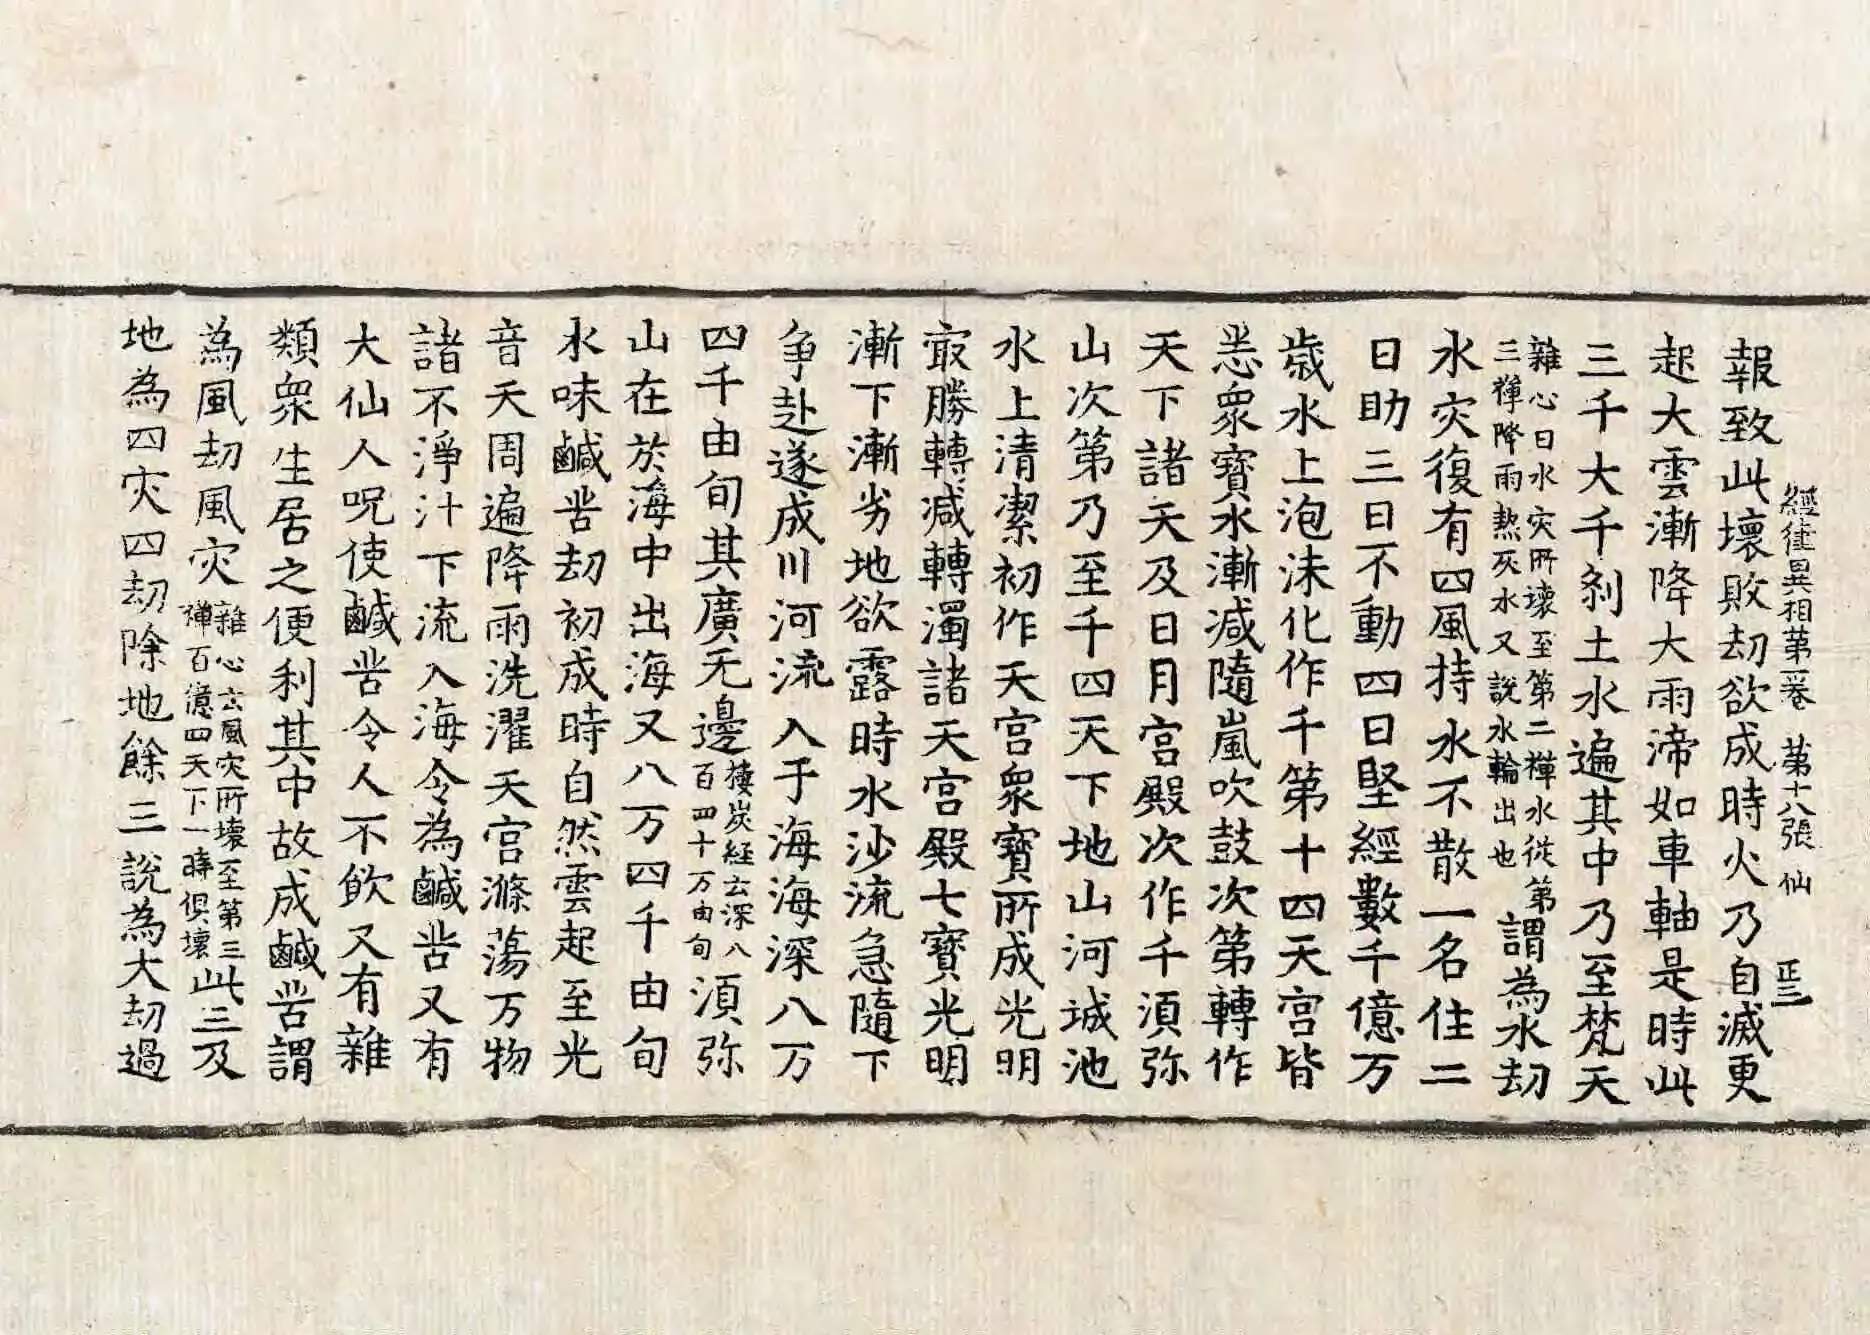 經律異相第一卷　第十八張　仙
報致此壞敗劫欲成時火乃自滅更
起大雲漸降大雨渧如車軸是時此
三千大千剎土水遍其中乃至梵天
雜心曰水灾所壞至第二禪水從第
三禪降雨熱灰水又說水輪出也
謂為水劫
水灾復有四風持水不散一名住二
日助三日不動四日堅經數千億万
歲水上泡沫化作千第十四天宮皆
悉衆寶水漸減隨嵐吹鼓次第轉作
天下諸天及日月宮殿次作千須弥
山次第乃至千四天下地山河城池
水上清潔初作天宮衆寶所成光明
㝡勝轉減轉濁諸天宮殿七寶光明
漸下漸劣地欲露時水沙流急隨下
争赴遂成川河流入于海海深八万
四千由旬其廣无邊
樓炭経云深八
百四十万由旬
須弥
山在於海中出海又八万四千由旬
水味鹹苦劫初成時自然雲起至光
音天周遍降雨洗濯天宮滌蕩万物
諸不淨汁下流入海令為鹹苦又有
大仙人呪使鹹苦令人不飲又有雜
類衆生居之便利其中故成鹹苦謂
為風劫風灾
雜心云風灾所壞至第三
禪百億四天下一時俱壞
此三及
地為四灾四劫除地餘三說為大劫過